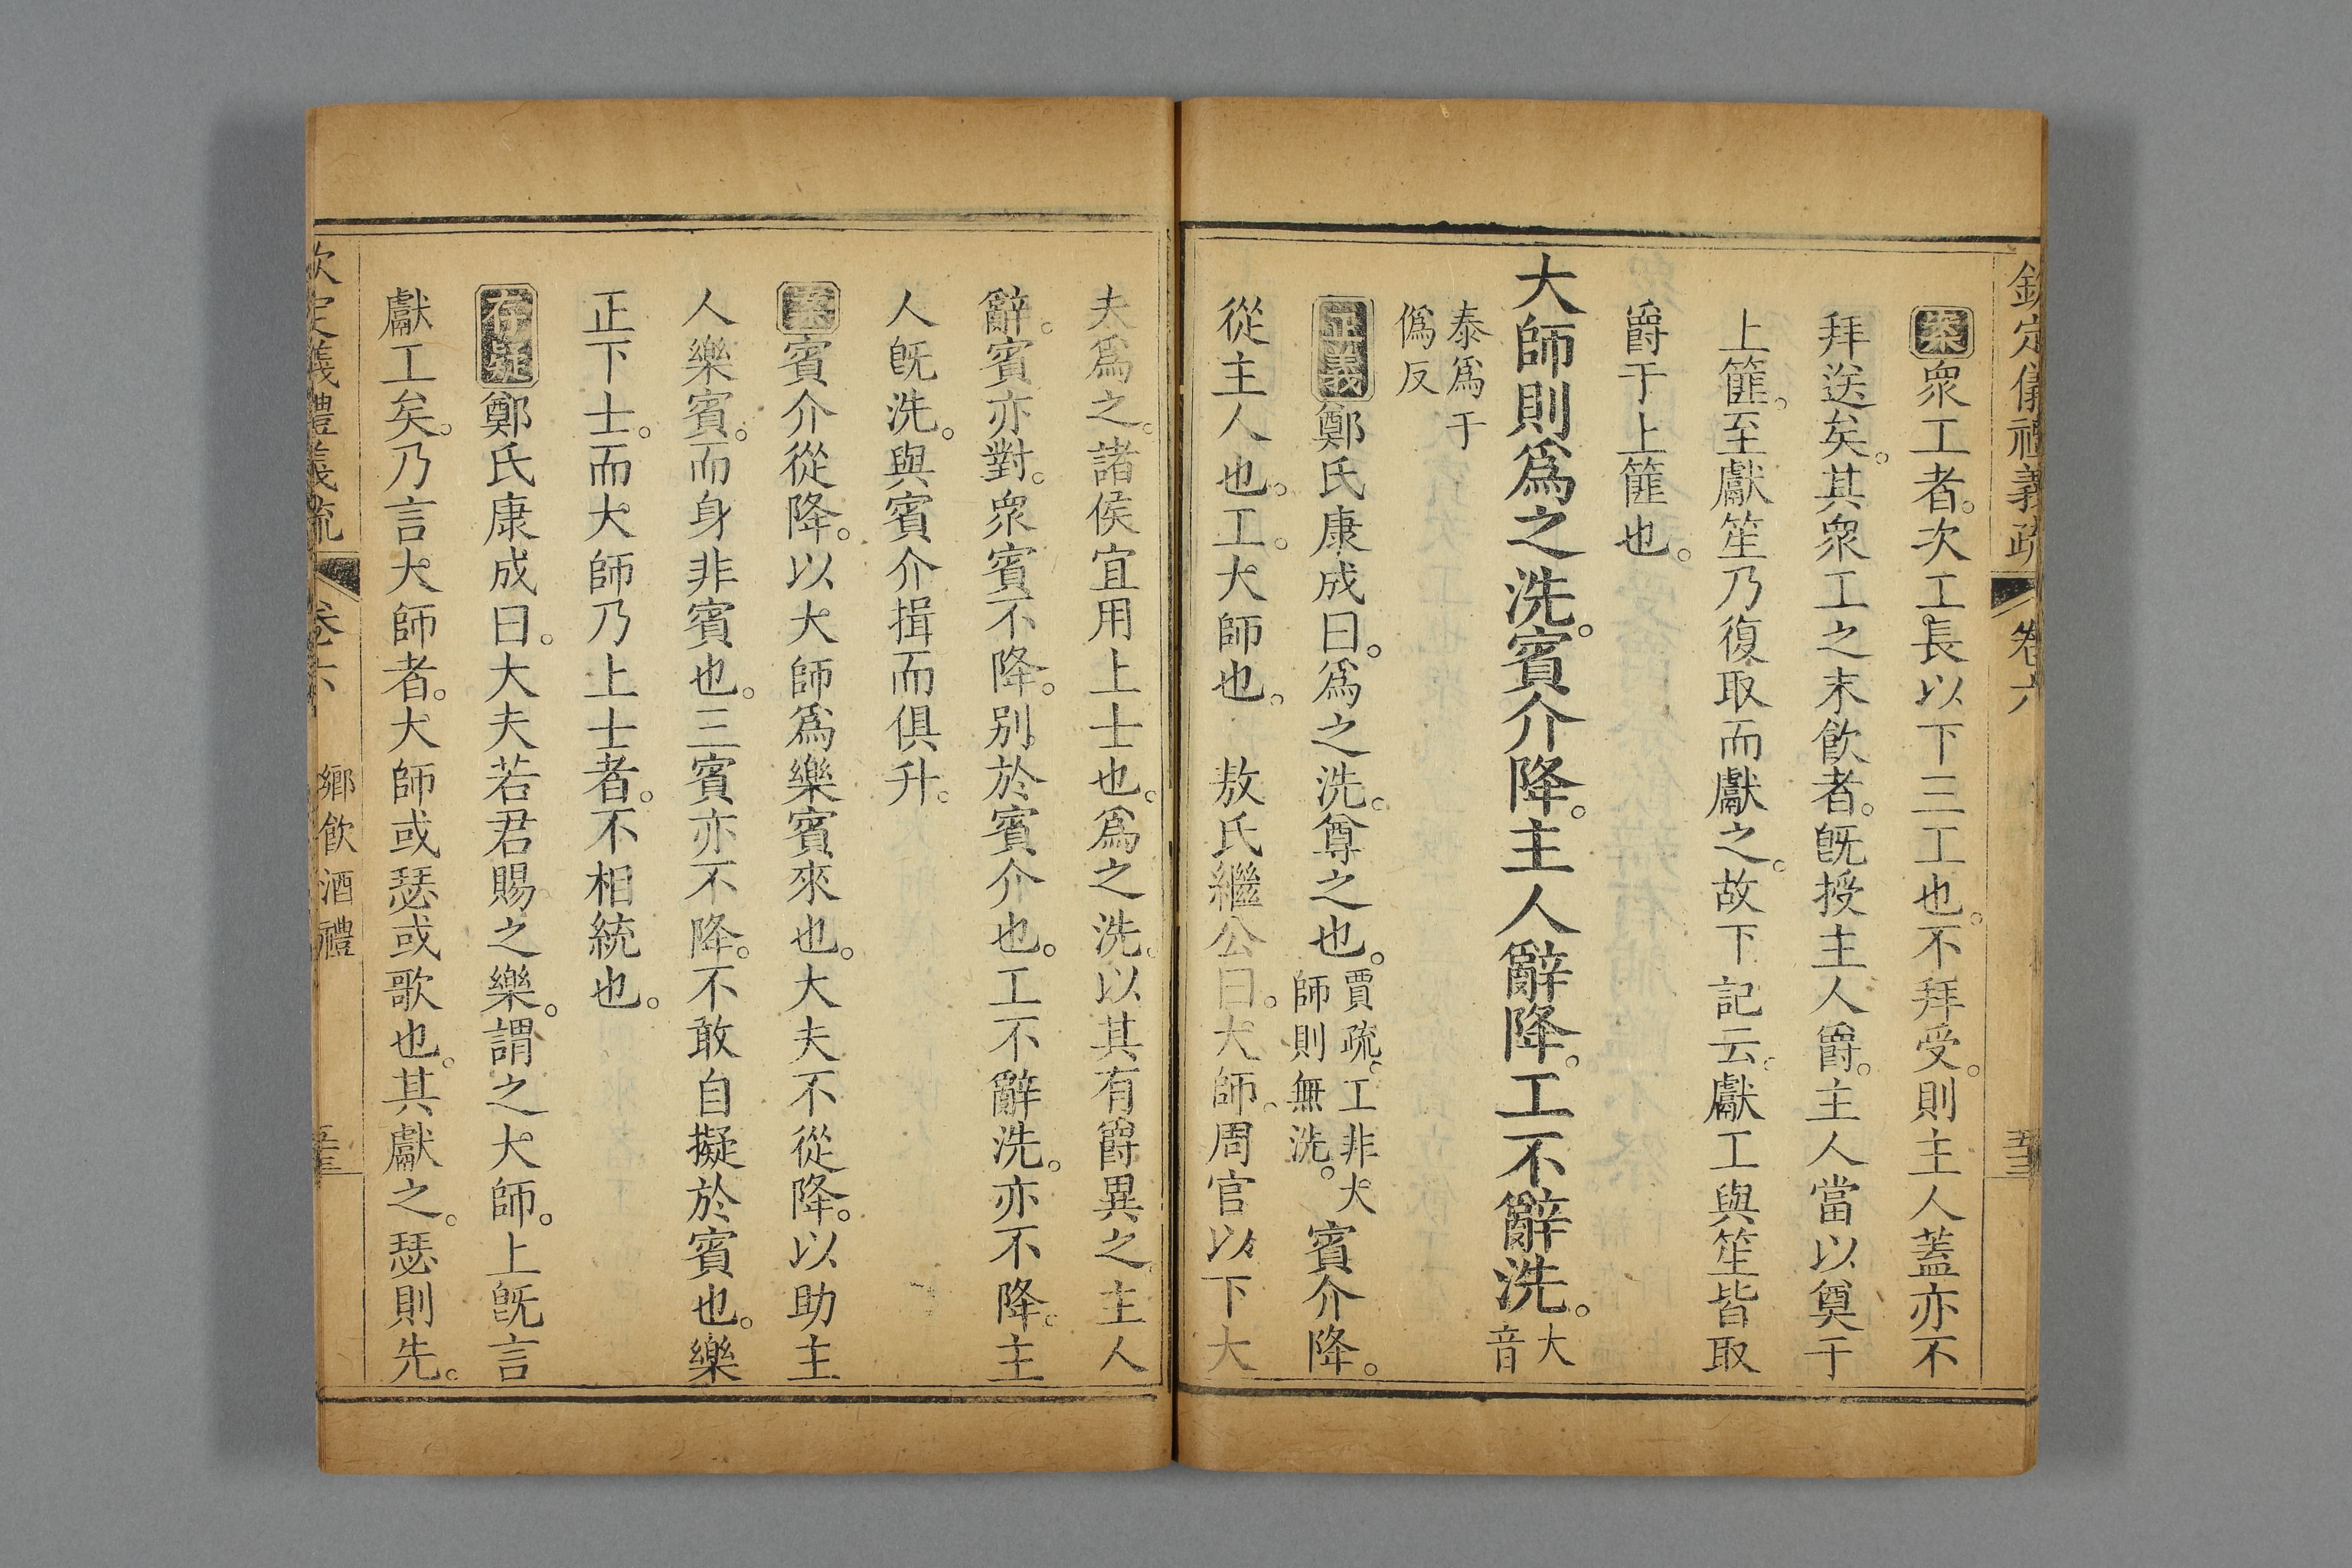 欽定儀禮義疏 卷六 五三
案衆工者。次工長以下三工也。不拜受。則主人蓋亦不
拜送矣。其衆工之末飲者。旣授主人爵。主人當以奠于
上篚。至獻笙乃復取而獻之。故下記云。獻工與笙皆取
爵于上篚也。
大師則爲之洗。賓介降。主人辭降。工不辭洗。大音
泰爲于
僞反
正義鄭氏康成曰。爲之洗。尊之也。賈疏。工非大師則無洗。賓介降。
從主人也。工。大師也。 敖氏繼公曰。大師。周官以下大
夫爲之。諸侯宜用上士也。爲之洗。以其有爵異之。主人
辭。賓亦對。衆賓不降。別於賓介也。工不辭洗。亦不降。主
人旣洗。與賓介揖而俱升。
案賓介從降。以大師爲樂賓來也。大夫不從降。以助主
人樂賓。而身非賓也。三賓亦不降。不敢自擬於賓也。樂
正下士。而大師乃上士者。不相統也。
存疑鄭氏康成曰。大夫若君賜之樂。謂之大師。上旣言
獻工矣。乃言大師者。大師或瑟或歌也。其獻之。瑟則先。
欽定儀禮義疏 卷六 鄉飲酒禮 五三